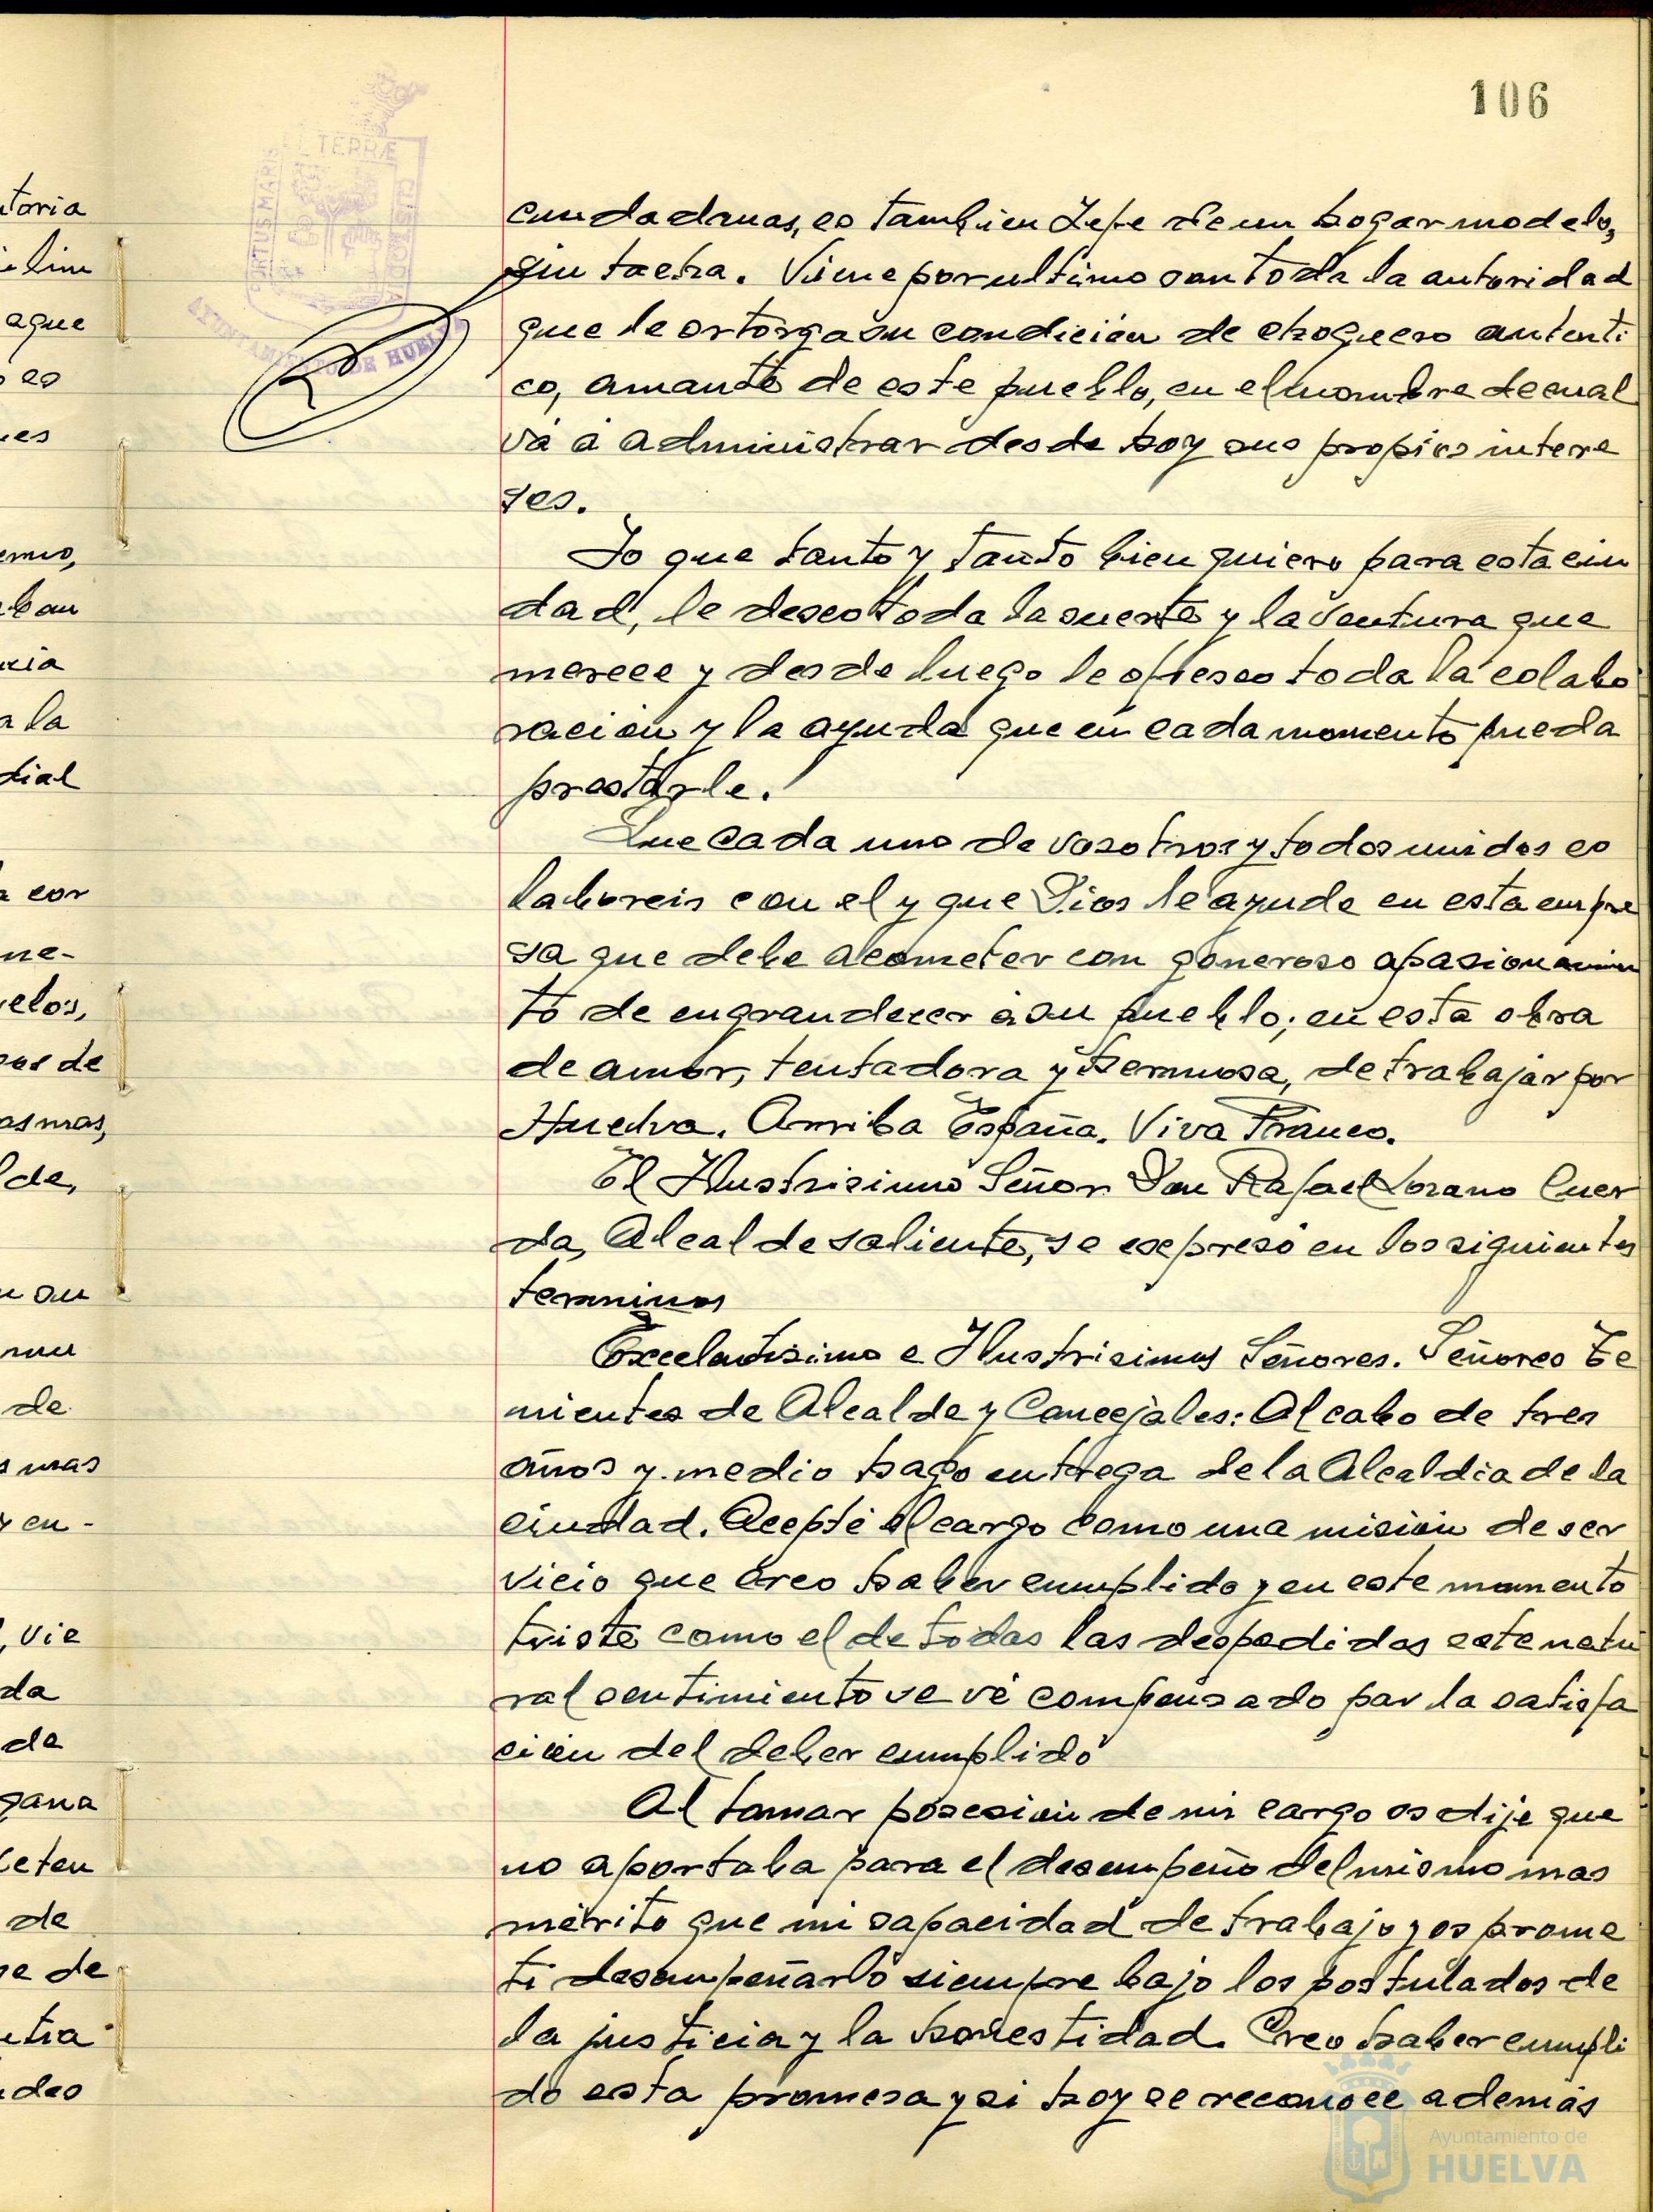 106
PORTUS MARIS
ET TERRÆ
CUSTODIA
AYUNTAMIENTO DE HUELVA
toria
lim
aque
es
ues
emio,
ban
cia
a la
dial
a cor
ne-
velos,
de
as mas,
lde,
su
de
s mas
y en-
, vie
da
de
gana
de
de
tra
ciudadanas, es tambien Jefe de un hogar modelo,
sin tacha. Viene por ultimo con toda la autoridad
que le ortorga su condición de choquero autenti
co, amante de este pueblo, en el nombre de cual
vá á administrar desde hoy sus propios intere
ses.
Yo que tanto y tanto bien quiero para esta ciu
dad, le deseo toda la suerte y la ventura que
merece y desde luego le ofresco toda la colabo
racion y la ayuda que en cada momento pueda
prestarle.
Que cada uno de vosotros y todos unidos co
laboreis con el y que Dios le ayude en esta empre
sa que debe acometer con generoso apasionamien
to de engrandecer á su pueblo; en esta obra
de amor, tentadora y hermosa, de trabajar por
Huelva. Arriba España. Viva Franco.
El Ilustrisimo Señor Don Rafael Lozano Cuer
da, Alcalde saliente, se expresó en los siguientes
terminos
Excelentisimo e Ilustrisimos Señores. Señores Te
nientes de Alcalde y Concejales: Al cabo de tres
años y medio hago entrega de la Alcaldia de la
ciudad. Acepté el cargo como una misión de ser
vicio que creo haber cumplido y en este momento
triste como el de todas las despedidas este natu
ral sentimiento se vé compensado por la satisfa
ción del deber cumplido
Al tomar posesión de mi cargo os dije que
no aportaba para el desempeño del mismo mas
mérito que mi capacidad de trabajo y os prome
ti desempeñarlo siempre bajo los postulados de
la justicia y la honestidad. Creo haber cumpli
do esta promesa y si hoy se reconoce además
Ayuntamiento de
HUELVA